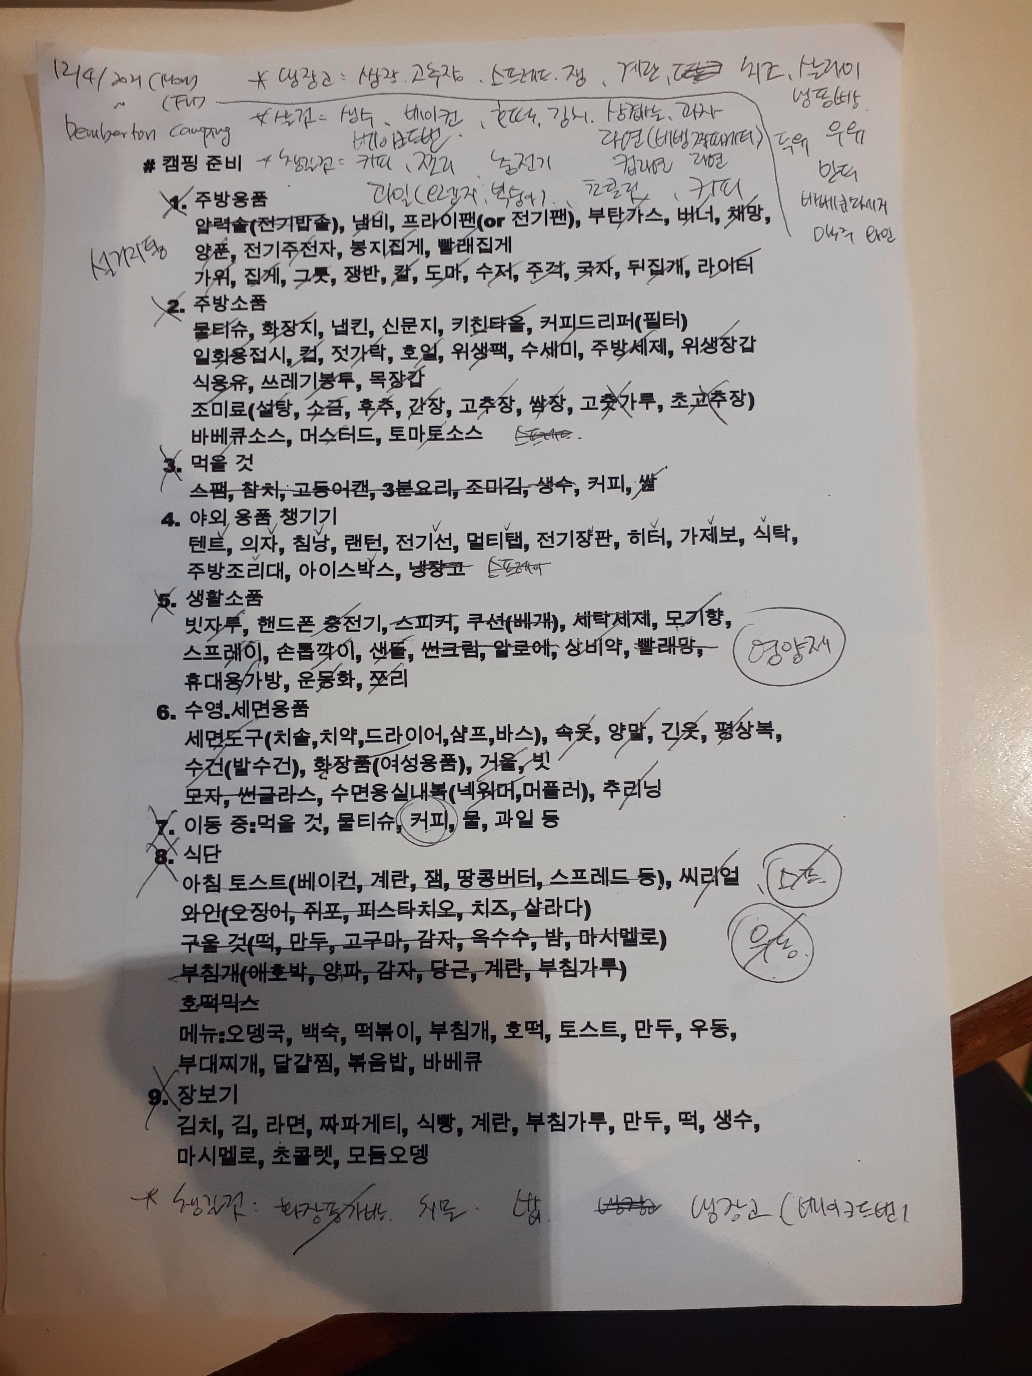 12/4/2021 (Mon)
~ (Fri)
Pemberton Camping
* 냉장고: 생강. 고추장. 스프레드. 잼, 계란, 치즈, 샐러이
* 살것: 생수, 베이컨, 호떡, 김치, 삼겹살, 과자
베이글드번 라면(비빔,짜파게티)
우유
만두
와인
# 캠핑 준비
* 챙길것: 커피, 젓리, 충전기 컵라면 라면
과일(오렌지, 복숭아), 초콜렛, 커피
설거지통
1. 주방용품
압력솥(전기밥솥), 냄비, 프라이팬(or 전기팬), 부탄가스, 버너, 채망,
양푼, 전기주전자, 봉지집게, 빨래집게
가위, 집게, 그릇, 쟁반, 칼, 도마, 수저, 주걱, 국자, 뒤집개, 라이터
2. 주방소품
물티슈, 화장지, 냅킨, 신문지, 키친타올, 커피드리퍼(필터)
일회용접시, 컵, 젓가락, 호일, 위생팩, 수세미, 주방세제, 위생장갑
식용유, 쓰레기봉투, 목장갑
조미료(설탕, 소금, 후추, 간장, 고추장, 쌈장, 고춧가루, 초고추장)
바베큐소스, 머스터드, 토마토소스 스프레드
3. 먹을 것
스팸, 참치, 고등어캔, 3분요리, 조미김, 생수, 커피, 쌀
4. 야외 용품 챙기기
텐트, 의자, 침낭, 랜턴, 전기선, 멀티탭, 전기장판, 히터, 가제보, 식탁,
주방조리대, 아이스박스, 냉장고 스프레이
5. 생활소품
빗자루, 핸드폰 충전기, 스피커, 쿠션(베개), 세탁세제, 모기향,
스프레이, 손톱깍이, 샌들, 썬크림, 알로에, 상비약, 빨래망, 영양제
휴대용가방, 운동화, 쪼리
6. 수영.세면용품
세면도구(치솔,치약,드라이어,샴프,바스), 속옷, 양말, 긴옷, 평상복,
수건(발수건), 화장품(여성용품), 거울, 빗
모자, 썬글라스, 수면용실내복(넥워머,머플러), 추리닝
7. 이동 중:먹을 것, 물티슈, 커피, 물, 과일 등
8. 식단
아침 토스트(베이컨, 계란, 잼, 땅콩버터, 스프레드 등), 씨리얼
와인(오징어, 쥐포, 피스타치오, 치즈, 살라다)
구울 것(떡, 만두, 고구마, 감자, 옥수수, 밤, 마시멜로) 우동.
부침개(애호박, 양파, 감자, 당근, 계란, 부침가루)
호떡믹스
메뉴:오뎅국, 백숙, 떡볶이, 부침개, 호떡, 토스트, 만두, 우동,
부대찌개, 달걀찜, 볶음밥, 바베큐
9. 장보기
김치, 김, 라면, 짜파게티, 식빵, 계란, 부침가루, 만두, 떡, 생수,
마시멜로, 초콜렛, 모듬오뎅
* 챙길것: 화장품가방. 밥 냉장고